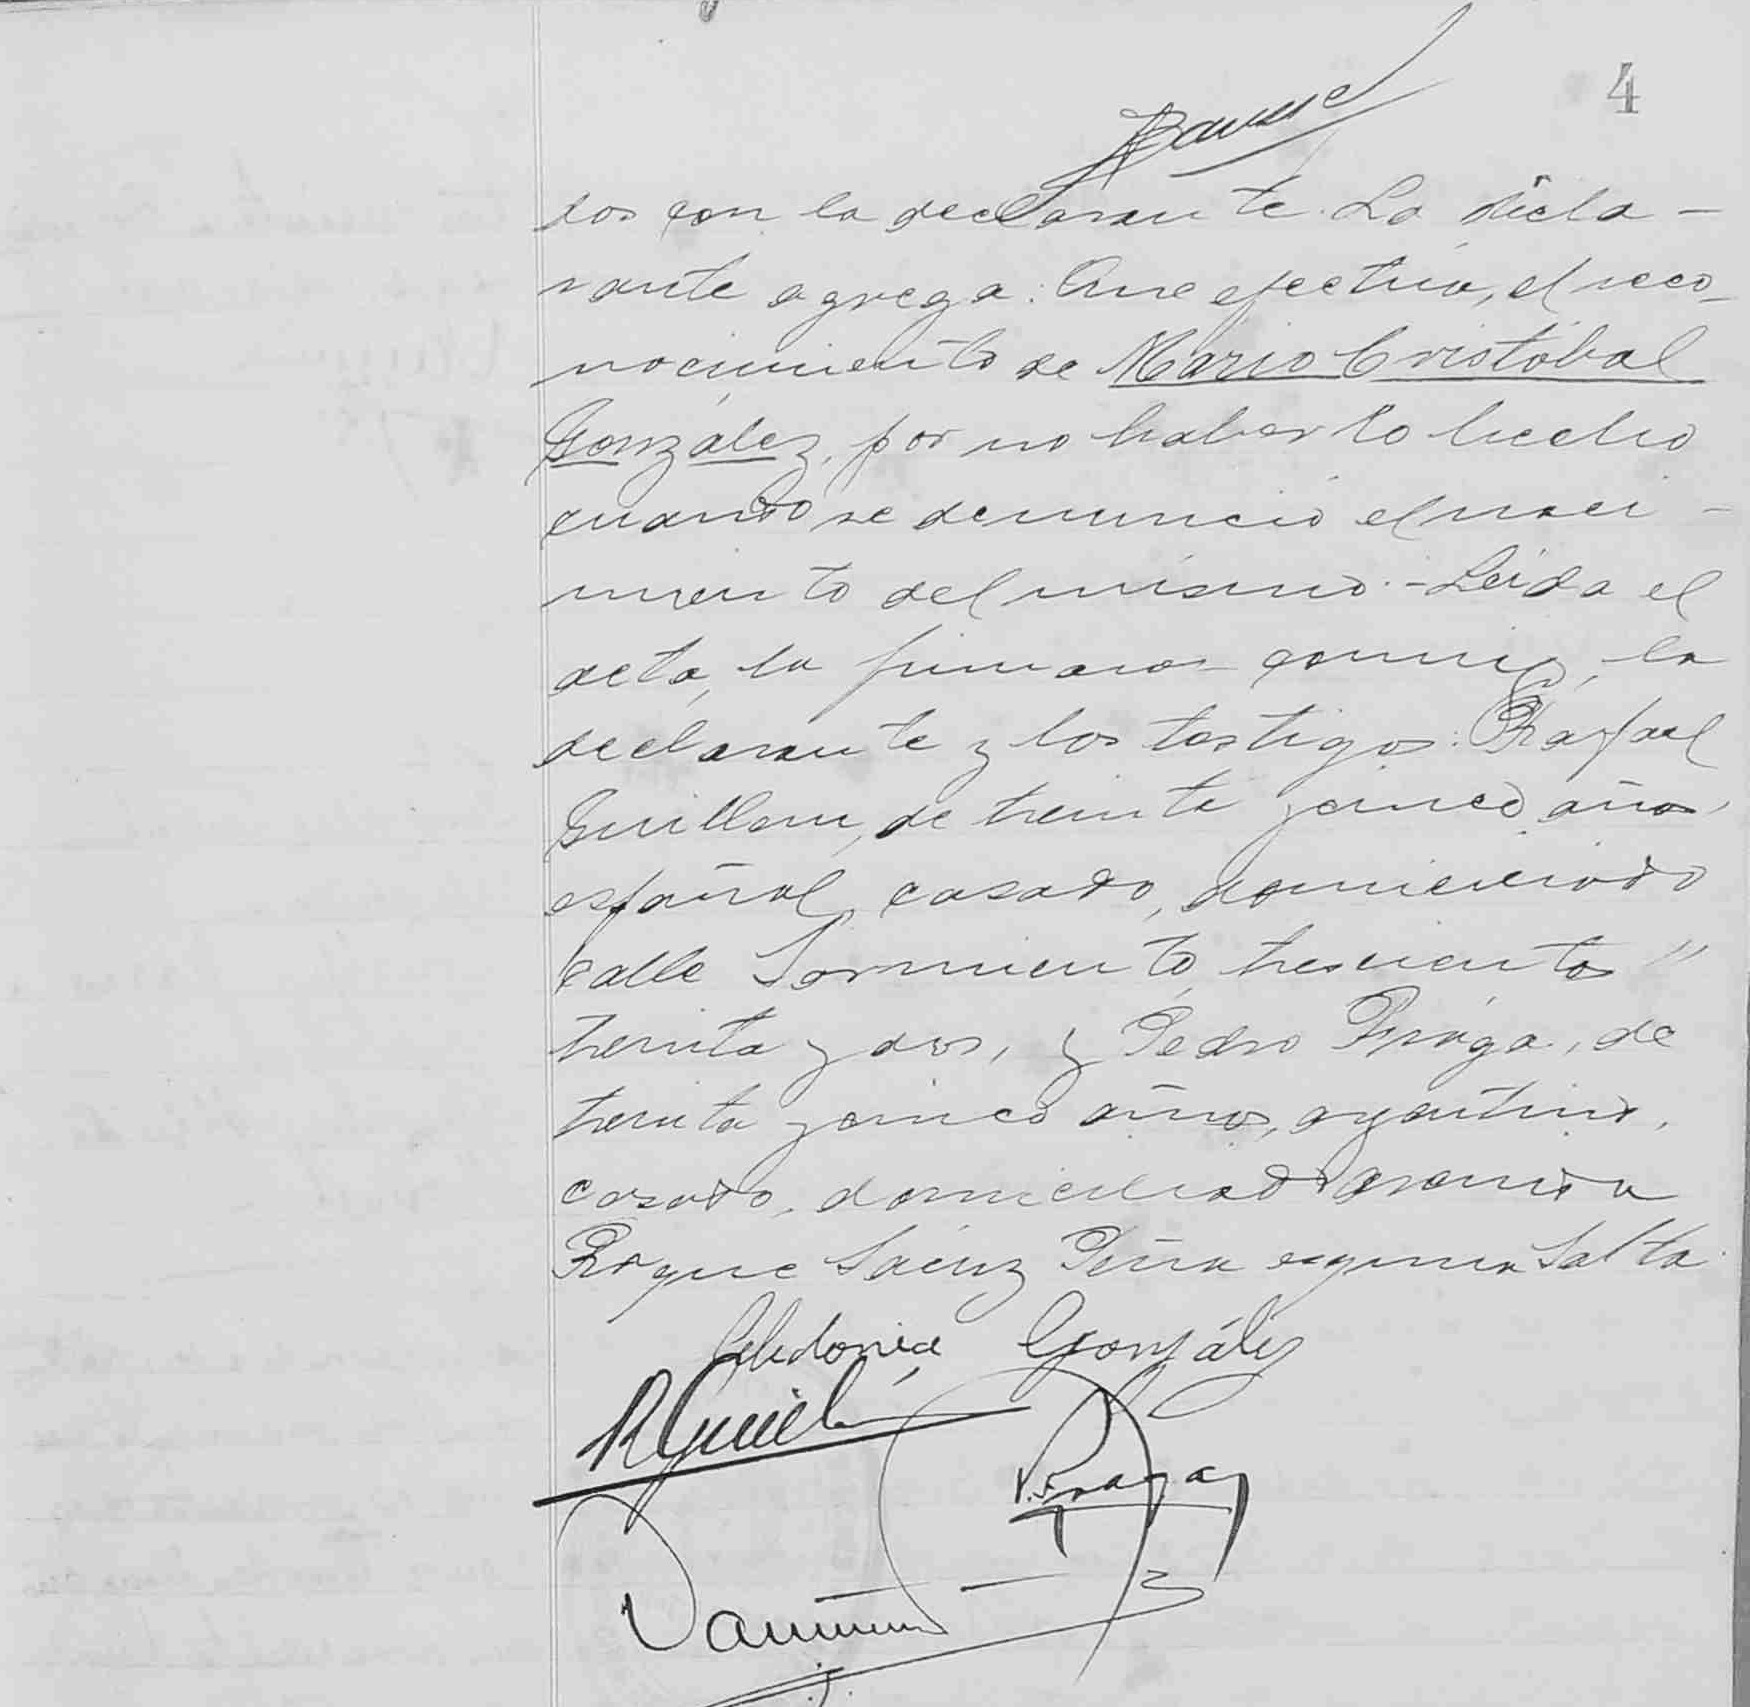 4
dos con la declarante. La decla-
rante agrega: Que efectúa, el reco-
nocimiento de Mario Cristóbal
González, por no haberlo hecho
cuando se denunció el naci-
miento del mismo.- Leída el
acta, la firmaron conmigo, la
declarante y los testigos: Rafael
Guillem, de treinta y cinco años,
español, casado, domiciliado
calle Sarmiento, trescientos "
treinta y dos, y Pedro Fraga, de
treinta y cinco años, argentino,
casado, domiciliado avenida
Roque Saenz Peña esquina Salta.
Celedonia González
R Guillem
P. Fraga